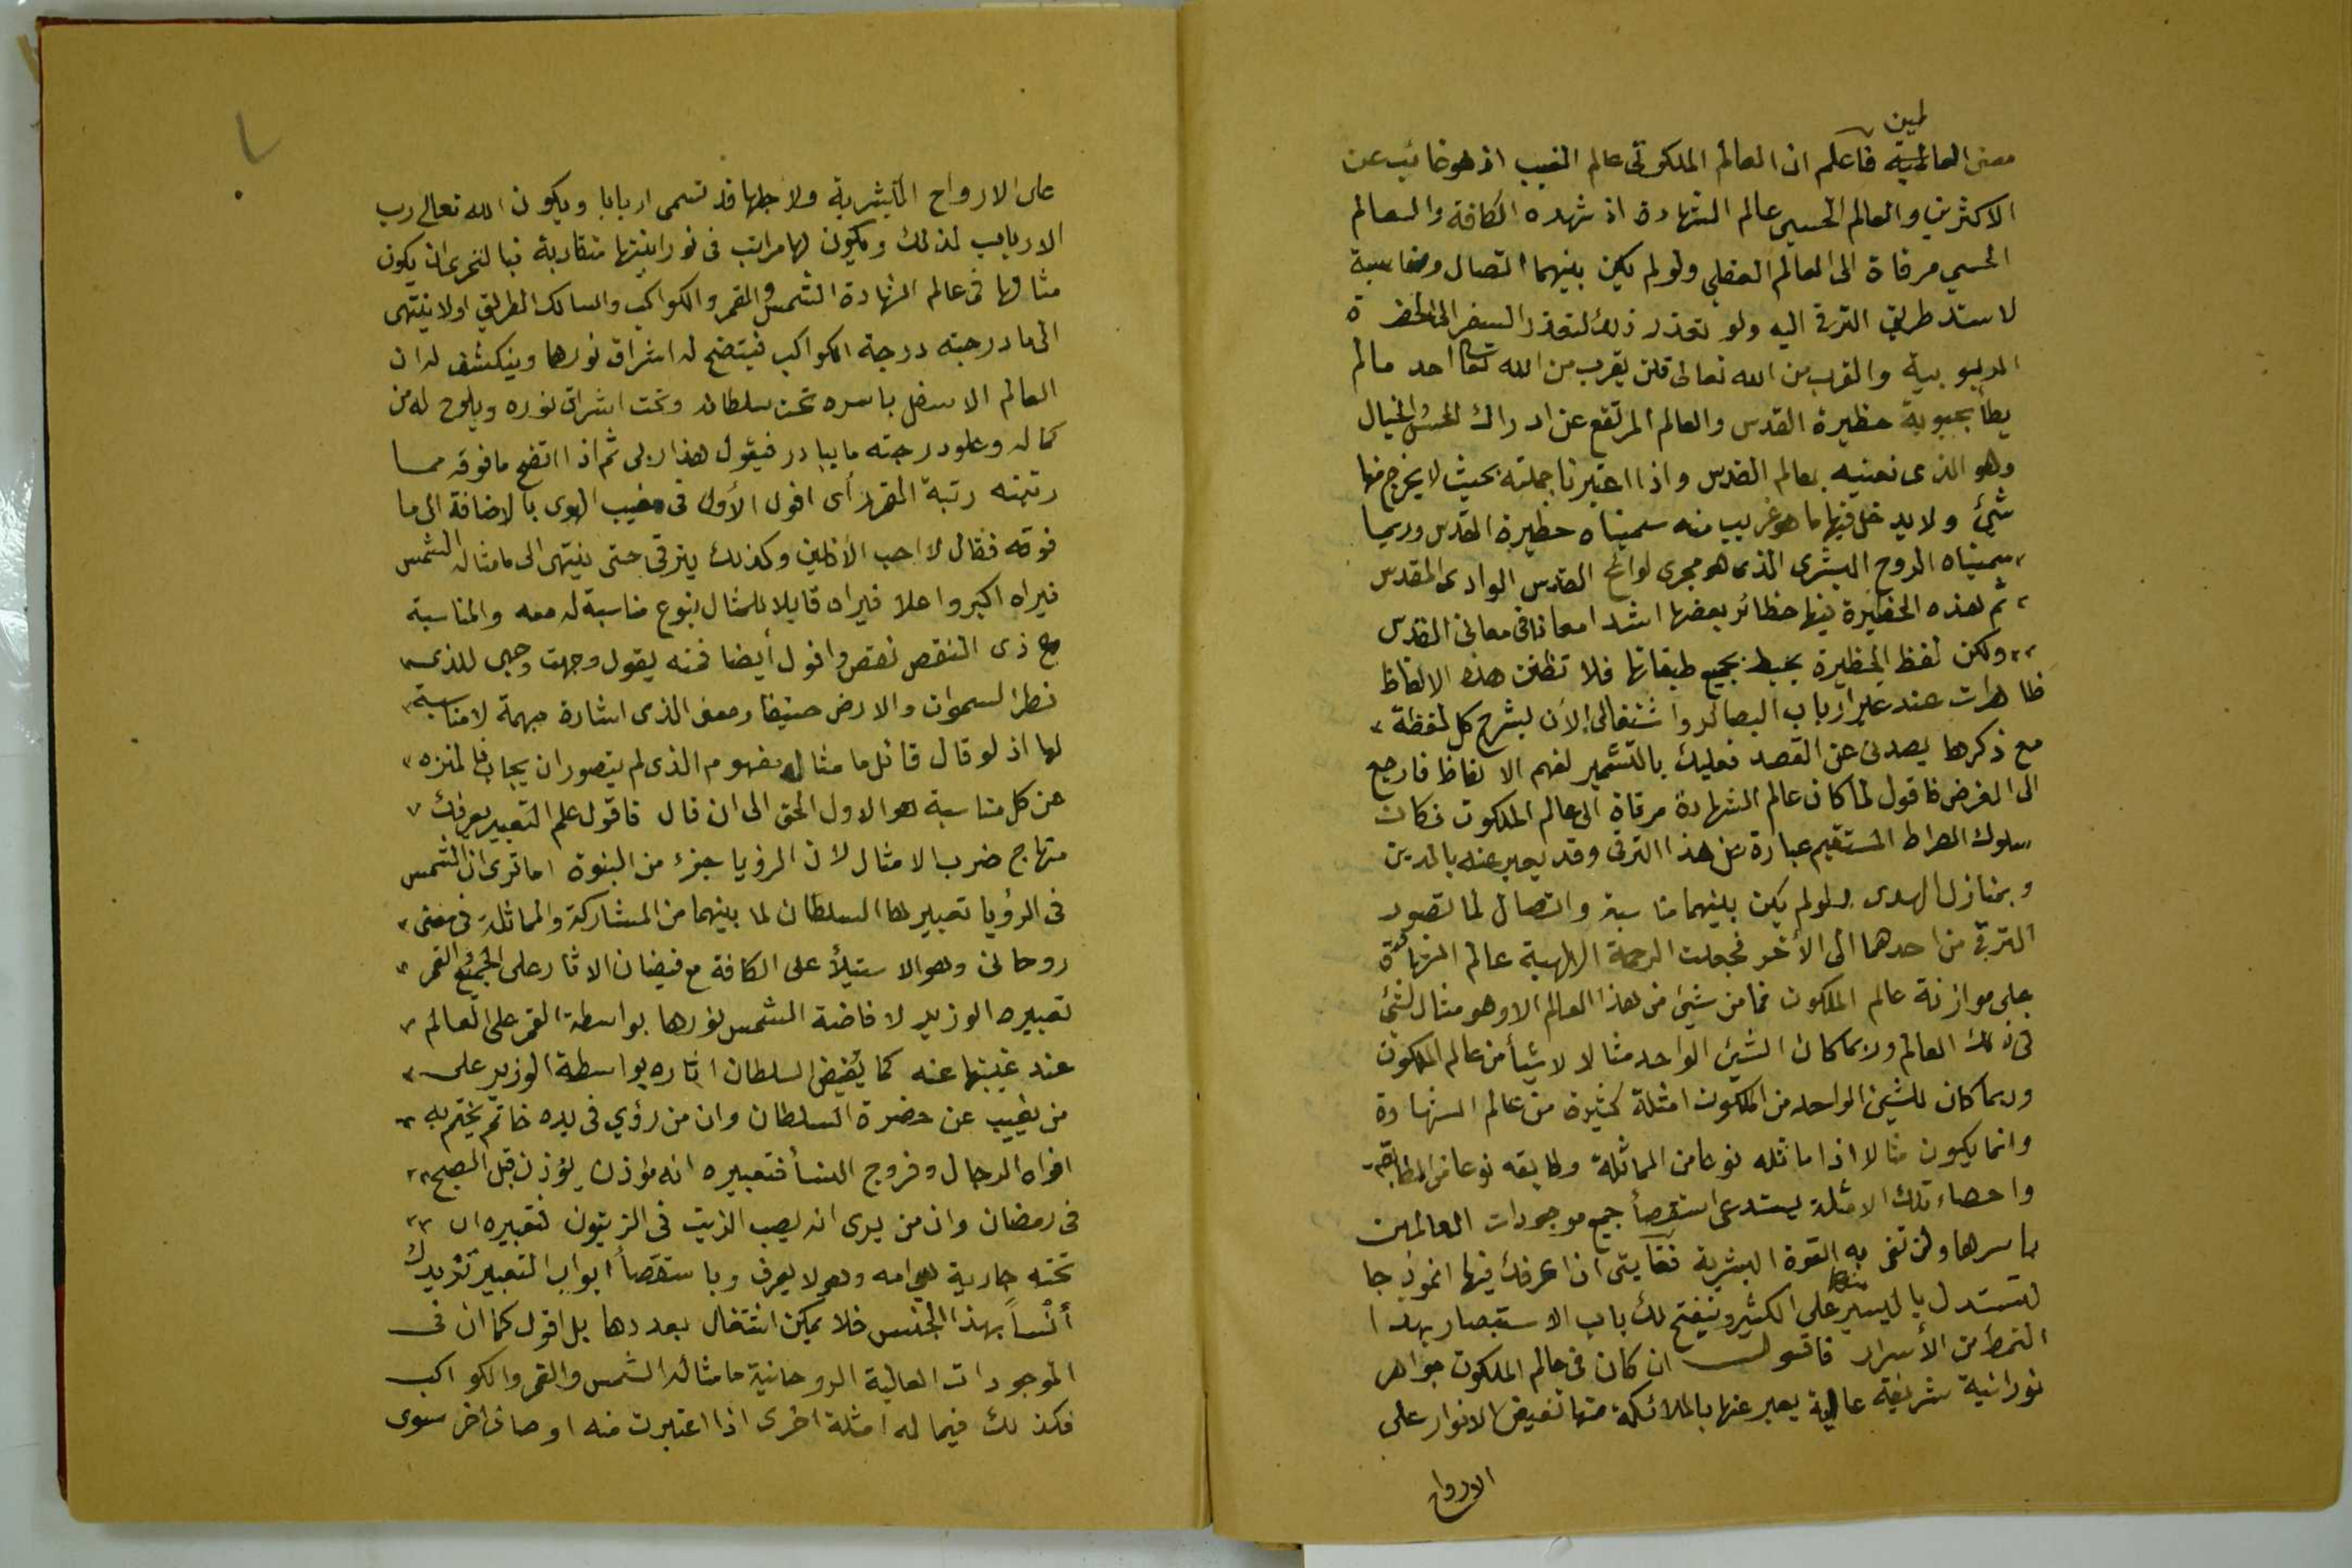 لمين
معنى العالمية فاعلم ان العالم الملكوتى عالم الغيب اذ هو غائب عن
الاكثرين والعالم الحسي عالم الشهادة اذ شهده الكافة والعالم
الحسي مرقاة الى العالم العقلي ولو لم يكن بينهما اتصال ومناسبة
لاستد طريق الترقي اليه ولو تعذر ذلك لتعذر السفر الى الحضرة
الربوبية والقرب من الله تعالى فلن يقرب من الله تعا احد مالم
يطأ بحبوبة حظيرة القدس والعالم المرتفع عن ادراك الحس والخيال
وهو الذى نعنيه بعالم القدس واذا اعتبرنا جملته بحيث لا يخرج منها
شئ ولا يدخل فيها ما هو غريب منه سميناه حظيرة القدس وربما
سميناه الروح البشرى الذى هو مجرى لوائح القدس الوادى المقدس
ثم هذه الحظيرة فيها حظائر بعضها اشد امعانا فى معانى القدس
ولكن لفظ الحظيرة يحيط بجميع طبقاتها فلا تظنن هذه الالفاظ
ظاهرات عند غير ارباب البصائر واشتغالى الأن بشرح كل لفظة
مع ذكرها يصدنى عن القصد فعليك بالتشمير لفهم الالفاظ فارجع
الى الغرض فاقول لما كان عالم الشهادة مرقاة الى عالم الملكوت فكان
سلوك الصراط المستقيم عبارة عن هذا الترقى وقد يعبر عنه بالدين
وبمنازل الهدى ولو لم يكن بينهما مناسبة واتصال لما تصور
الترقي من احدهما الى الأخر فجعلت الرحمة الالهية عالم الشهادة
على موازنة عالم الملكوت فما من شيئ من هذا العالم الا وهو مثال لشئ
فى ذلك العالم وربما كان الشيئ الواحد مثالا لاشيأ من عالم الملكوت
وربما كان للشيئ الواحد من الملكوت امثلة كثيرة من عالم الشهادة
وانما يكون مثالا اذا ماثله نوعا من المماثلة وطابقه نوعا من المطابقة
واحصاء تلك الامثلة يستدعى استقصأ جميع موجودات العالمين
باسرها ولن تفى به القوة البشرية فغايتى ان اعرفك فيها انموذجا
لتستدل باليسير منها على الكثير وينفتح لك باب الاستبصار بهذا
النمط من الأسرار فاقول ان كان فى عالم الملكوت جواهر
نورانية شريفة عالية يعبر عنها بالملائكة منها تفيض الانوار على
الارواح
على الارواح البشرية ولاجلها قد تسمى اربابا ويكون الله تعالى رب
الارباب لذلك ويكون لها مراتب فى نورانيتها متقاربة فبالحرى ان يكون
مثالها فى عالم الشهادة الشمس والقمر والكواكب والسالك الطريق اولا ينتهى
الى ما درجته درجة الكواكب فيتضح له اشراق نورها وينكشف له ان
العالم الاسفل باسره تحت سلطانه وتحت اشراق نوره ويلوح له من
كماله وعلو درجته ما يبادر فيقول هذا ربى ثم اذا اتضح ما فوقه مما
رتبته رتبة القمر رأى افول الأول فى مغيب الهوى بالاضافة الى ما
فوقه فقال لا احب الأفلين وكذلك يترقى حتى ينتهى الى ما مثاله الشمس
فيراه اكبر واعلا فيراه قابلا للمثال بنوع مناسبة له معه والمناسبة
مع ذى النقص نقص وافول أيضا فمنه يقول وجهت وجهى للذى
فطر السموات والارض حنيفا ومعنى الذى اشارة مبهمة لا مناسبة
لها اذ لو قال قائل ما مثال مفهوم الذى لم يتصور ان يجاب فالمنزه
عن كل مناسبة هو الاول الحق الى ان قال فاقول علم التعبير يعرفك
منهاج ضرب الامثال لان الرؤيا جزء من النبوة اما ترى ان الشمس
فى الرؤيا تعبيرها السلطان لما بينهما من المشاركة والمماثلة فى معنى
روحانى وهو الاستيلأ على الكافة مع فيضان الاثار على الجميع والقمر
تعبيره الوزير لافاضة الشمس نورها بواسطة القمر على العالم
عند غيبتها عنه كما يُفيض السلطان اثاره بواسطة الوزير على
من يغيب عن حضرة السلطان وان من رؤي فى يده خاتم يختم به
افواه الرجال وفروج النسأ فتعبيره انه مؤذن يؤذن قبل الصبح
فى رمضان وان من يرى انه يصب الزيت فى الزيتون فتعبيره ان
تحته جارية هي امه وهو لا يعرف وباستقصأ ابواب التعبير تزيدك
أنساً بهذا الجنس فلا يمكن اشتغال بعددها بل اقول كما ان فى
الموجودات العالية الروحانية ما مثاله الشمس والقمر والكواكب
فكذلك فيما له امثلة اخرى اذا اعتبرت منه اوصاف اخر سوى